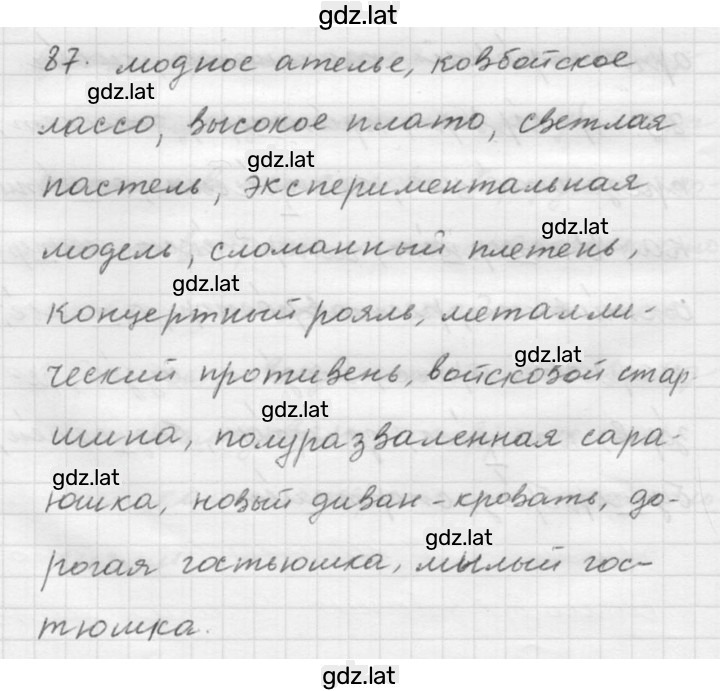 gdz.lat
87. модное ателье, ковбойское
gdz.lat
лассо, высокое плато, светлая
gdz.lat
пастель, экспериментальная
gdz.lat
модель, сломанный плетень,
gdz.lat
концертный рояль, металли-
gdz.lat
ческий противень, войсковой стар-
gdz.lat
шина, полуразваленная сара-
gdz.lat
юшка, новый диван-кровать, до-
gdz.lat
рогая гостьюшка, милый гос-
тюшка.
gdz.lat